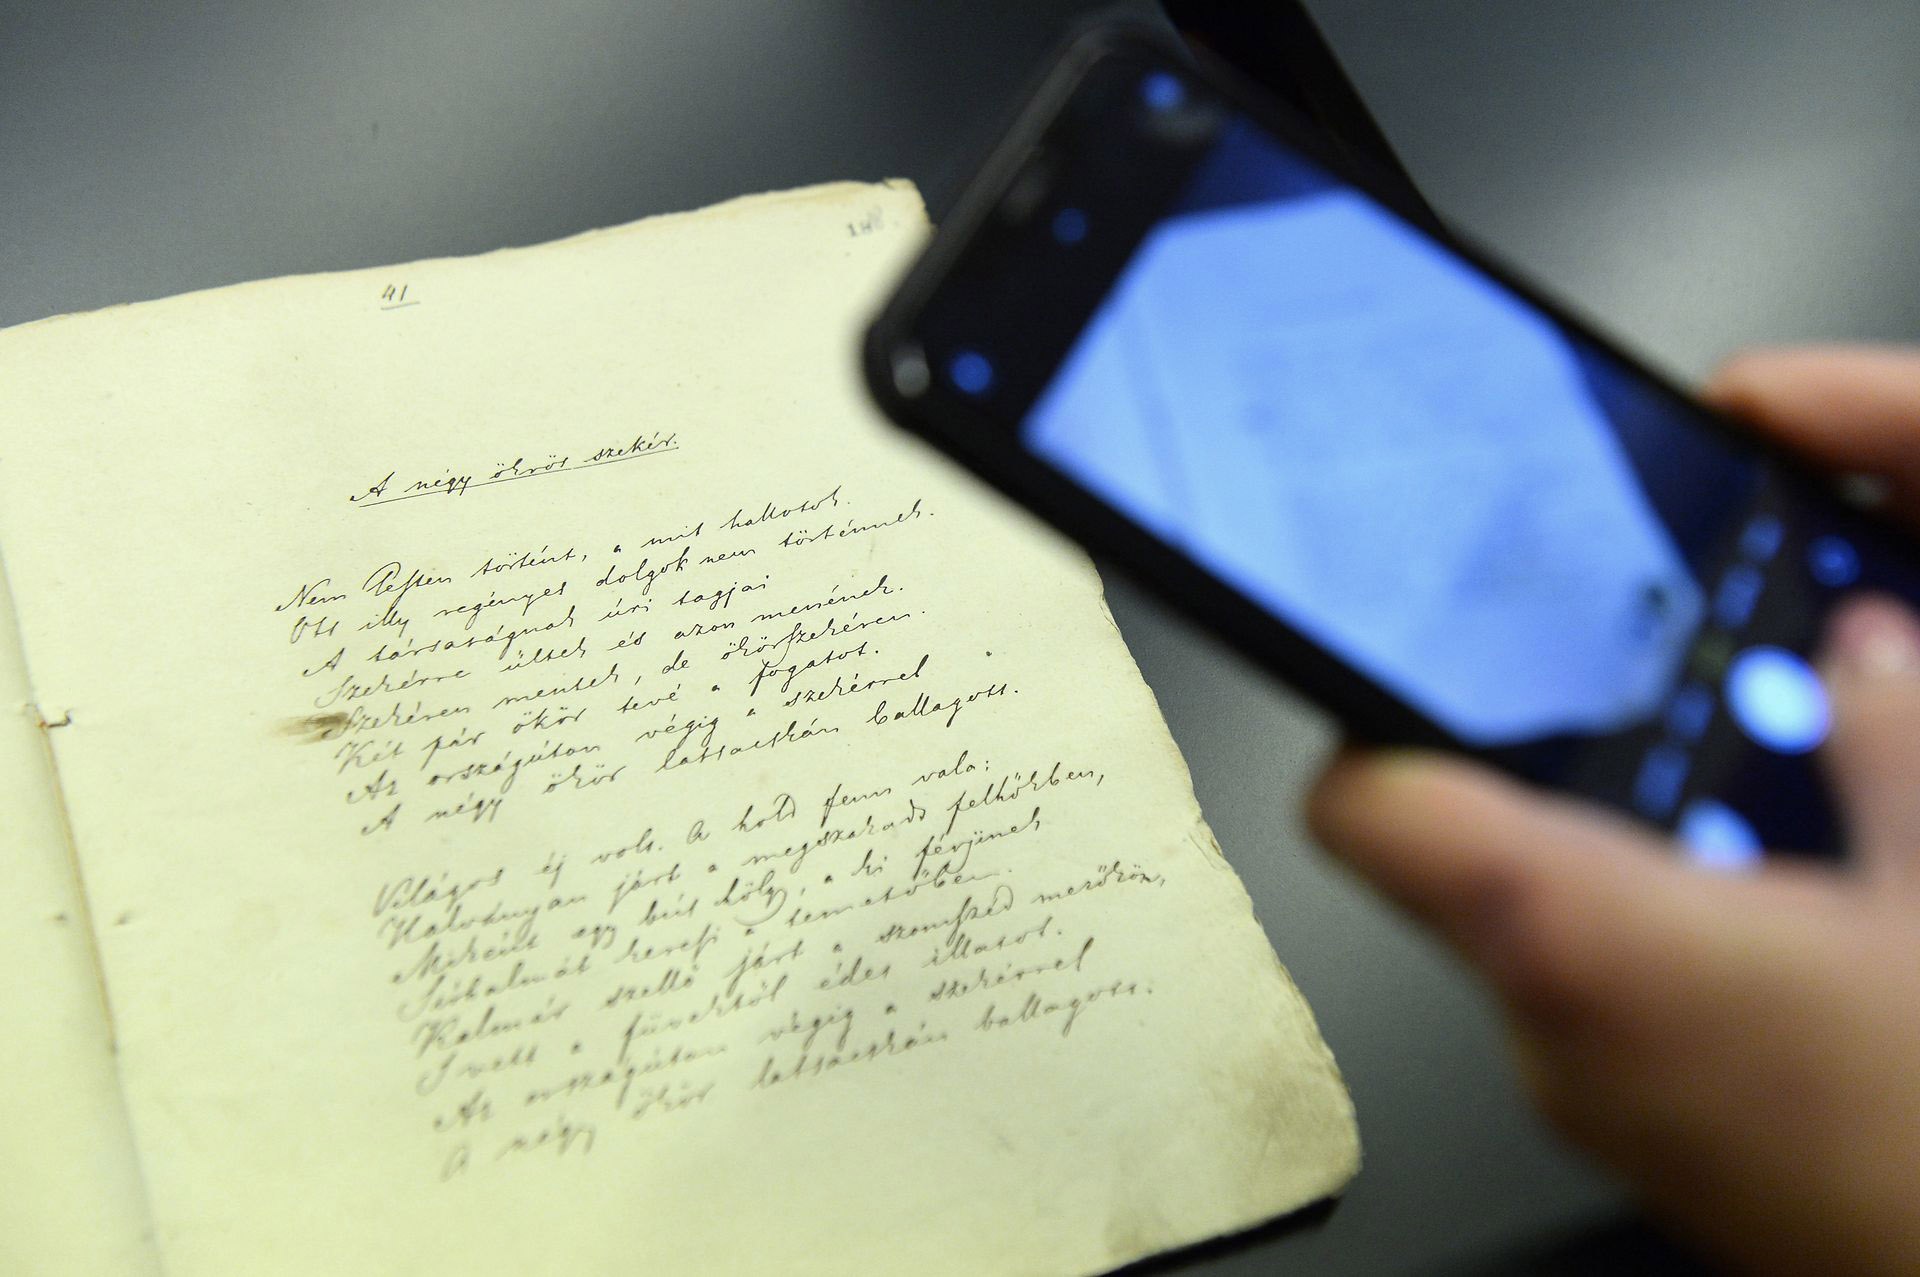 41
A négy ökrös szekér.
Nem Pesten történt, a mit hallotok.
Ott illy regényes dolgok nem történnek.
A társaságnak úri tagjai
Szekérre ültek és azon menének.
Szekéren mentek, de ökörszekéren.
Két pár ökör tevé a fogatot.
Az országúton végig a szekérrel
A négy ökör lassacskán ballagott.
Világos éj volt. A hold fenn vala;
Halványan járt a megszakadt felhőkben,
Miként egy bús hölgy, a ki férjinek
Sírhalmát keresi a temetőben.
Kalmár szellő járt a szomszéd mezőkön,
S vett a füvektől édes illatot.
Az országúton végig a szekérrel
A négy ökör lassacskán ballagott.